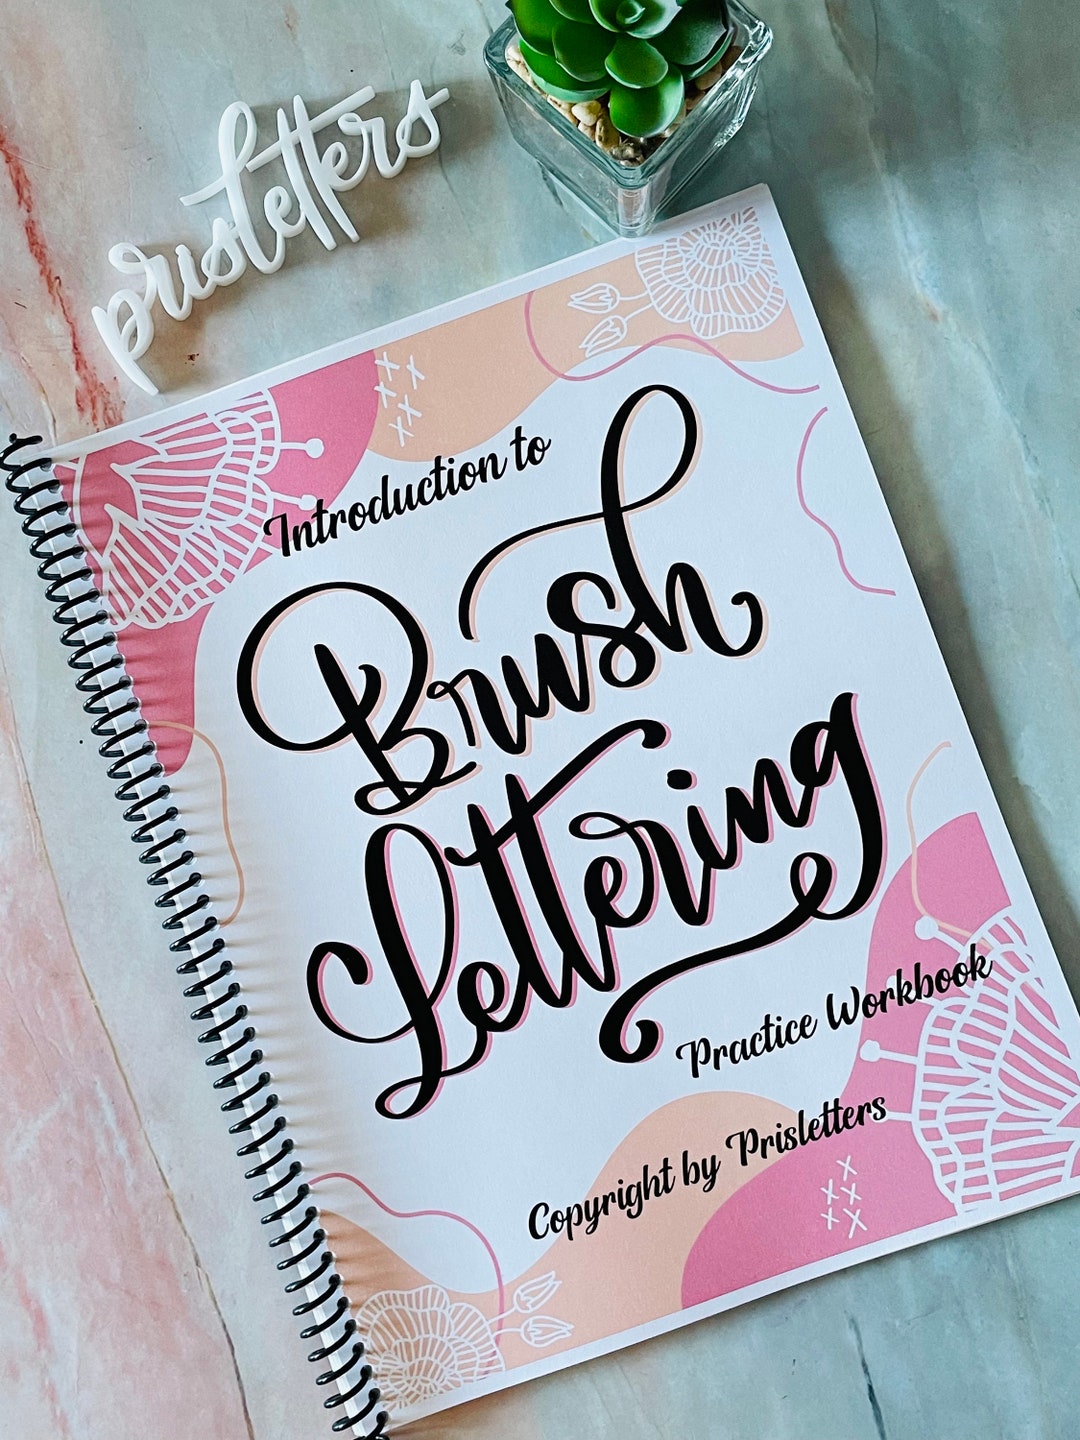 prisletters
Introduction to
Brush
Lettering
Practice Workbook
Copyright by Prisletters